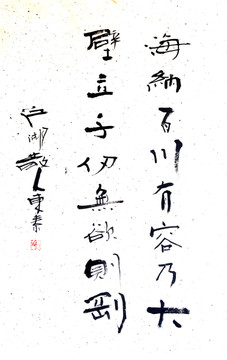 海納百川有容乃大
壁立千仞無欲則剛
湖散人東